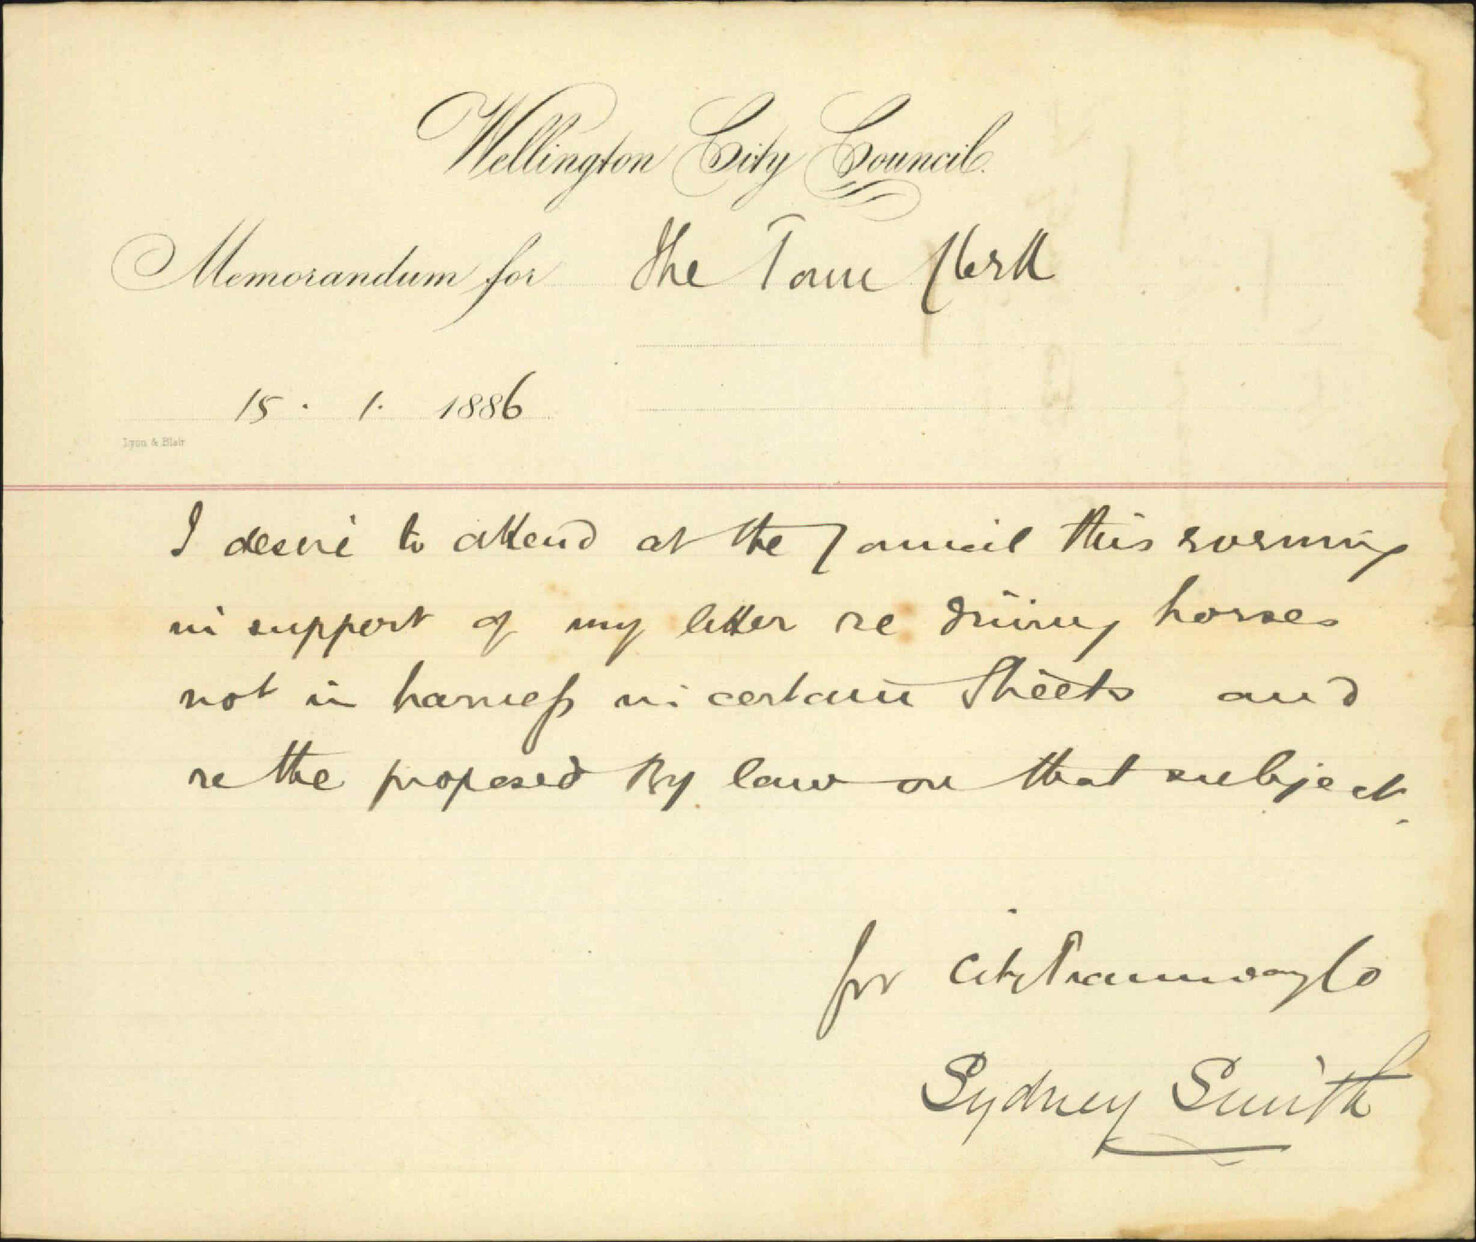 Wellington City Council.
Memorandum for The Town Clerk
15 . 1. 1886
Lyon & Blair
I desire to attend at the Council this evening
in support of my letter re driving horses
not in harness in certain Streets and
re the proposed By law on that subject.
for City Tramway Co
Sydney Smith